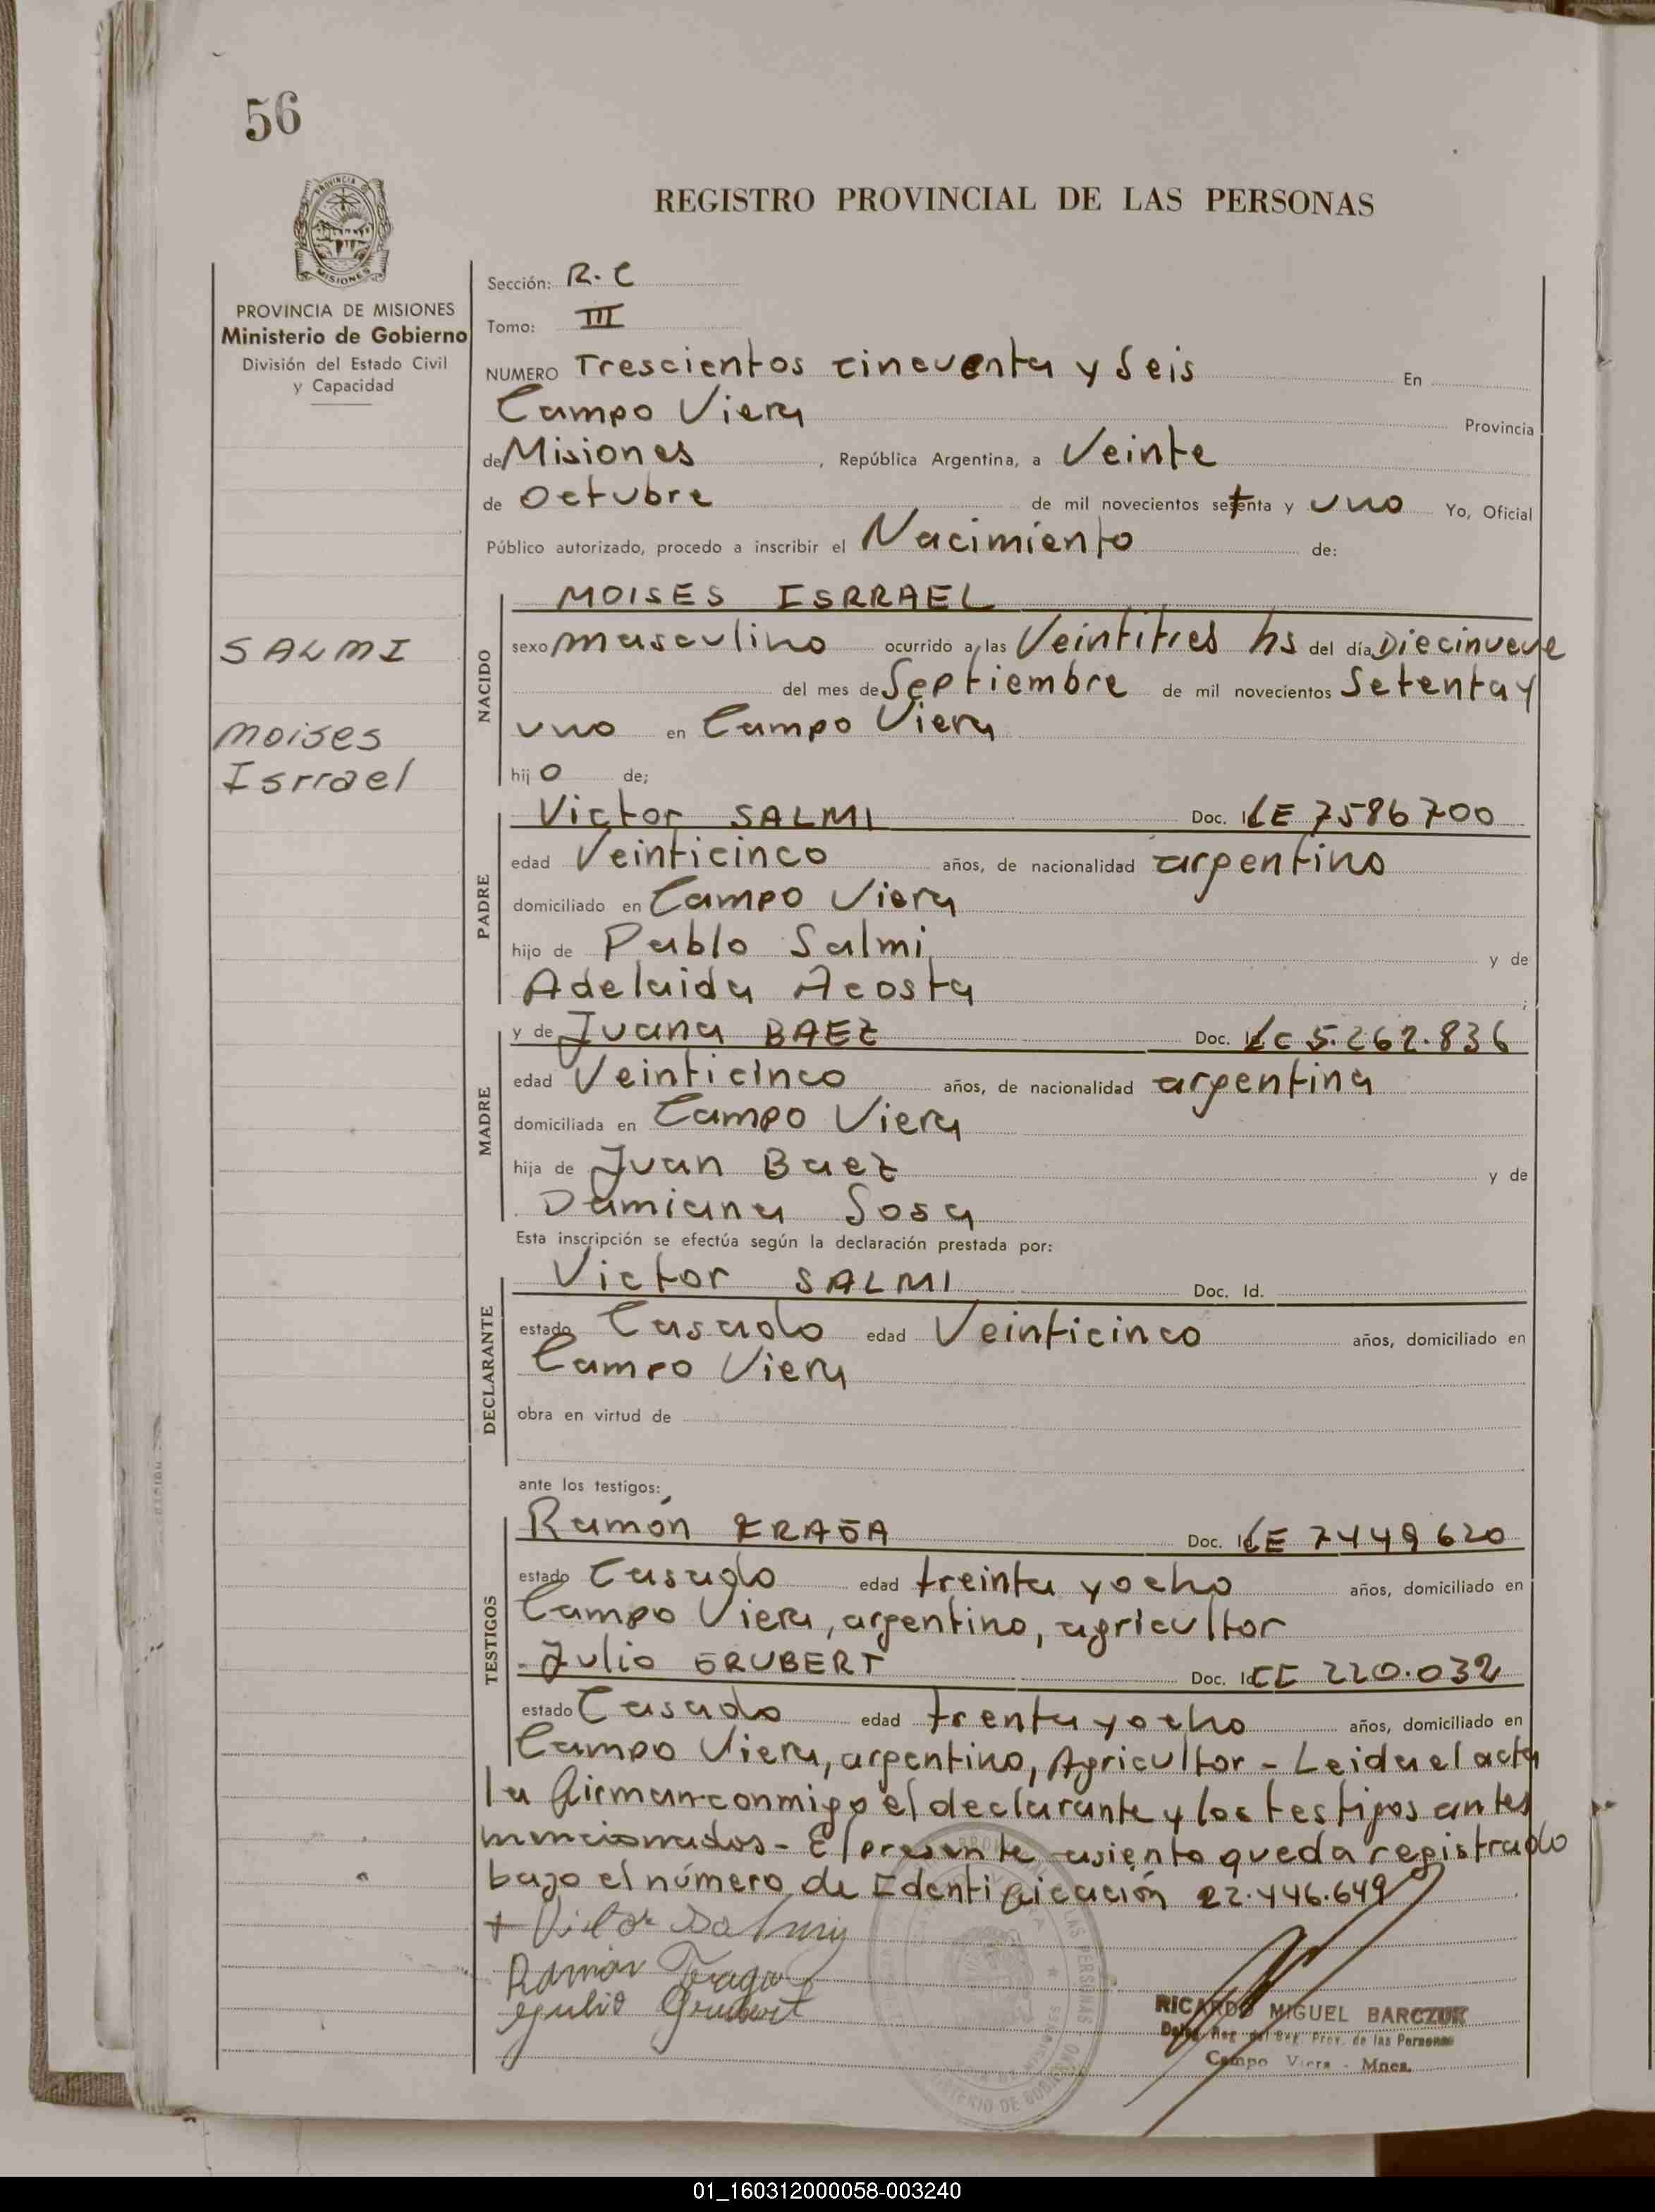 56
REGISTRO PROVINCIAL DE LAS PERSONAS
PROVINCIA DE MISIONES
Ministerio de Gobierno
División del Estado Civil
y Capacidad
SALMI
Moises
Isrrael
Sección: R.C
Tomo: III
NUMERO Trescientos cincuenta y Seis En
Campo Viera Provincia
de Misiones, República Argentina, a Veinte
de Octubre de mil novecientos setenta y uno Yo, Oficial
Público autorizado, procedo a inscribir el Nacimiento de:
NACIDO
MOISES ISRRAEL
sexo masculino ocurrido a las Veintitres hs del día Diecinueve
del mes de Septiembre de mil novecientos Setenta y
uno en Campo Viera
hijo de;
PADRE
Victor SALMI Doc. LE 7586700
edad Veinticinco años, de nacionalidad argentino
domiciliado en Campo Viera
hijo de Pablo Salmi y de
Adelaida Acosta
MADRE
y de Juana BAEZ Doc. LC 5.262.836
edad Veinticinco años, de nacionalidad argentina
domiciliada en Campo Viera
hija de Juan Baez y de
Damiana Sosa
Esta inscripción se efectúa según la declaración prestada por:
DECLARANTE
Victor SALMI Doc. Id.
estado Casado edad Veinticinco años, domiciliado en
Campo Viera
obra en virtud de
ante los testigos:
TESTIGOS
Ramón Doc. LE 7449620
estado Casado edad treinta y ocho años, domiciliado en
Campo Viera, argentino, agricultor
Julio GRUBERT Doc. 220.032
estado Casado edad trenta y ocho años, domiciliado en
Campo Viera, argentino, Agricultor - Leida el acta
la firman conmigo el declarante y los testigos antes
mencionados - El presente asiento queda registrado
bajo el número de Identificación 22.446.649
+ Victor
Ramon
Julio Grubert
RICARDO MIGUEL BARCZUK
Deleg. Reg. del Reg. Prov. de las Personas
Campo Viera - Mnes.
01_160312000058-003240